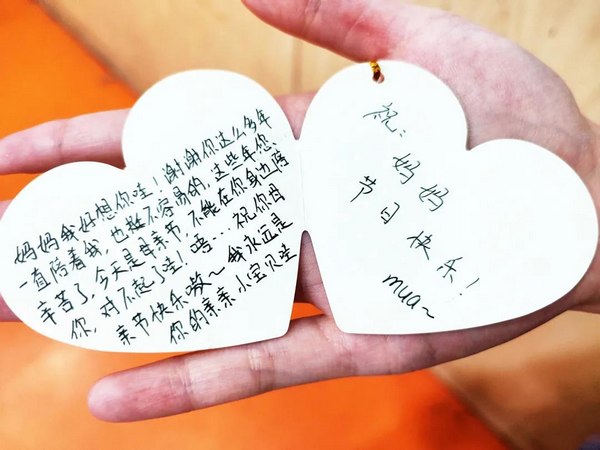 妈妈我好想你哇！谢谢你这么多年
一直陪着我，也挺不容易的，这些年您
辛苦了，今天是母亲节，不能在你身边陪
你，对不起了哇！唔…祝你母
亲节快乐嗷～我永远是
你的亲亲小宝贝哇
祝：
妈妈
节日快乐！
mua~